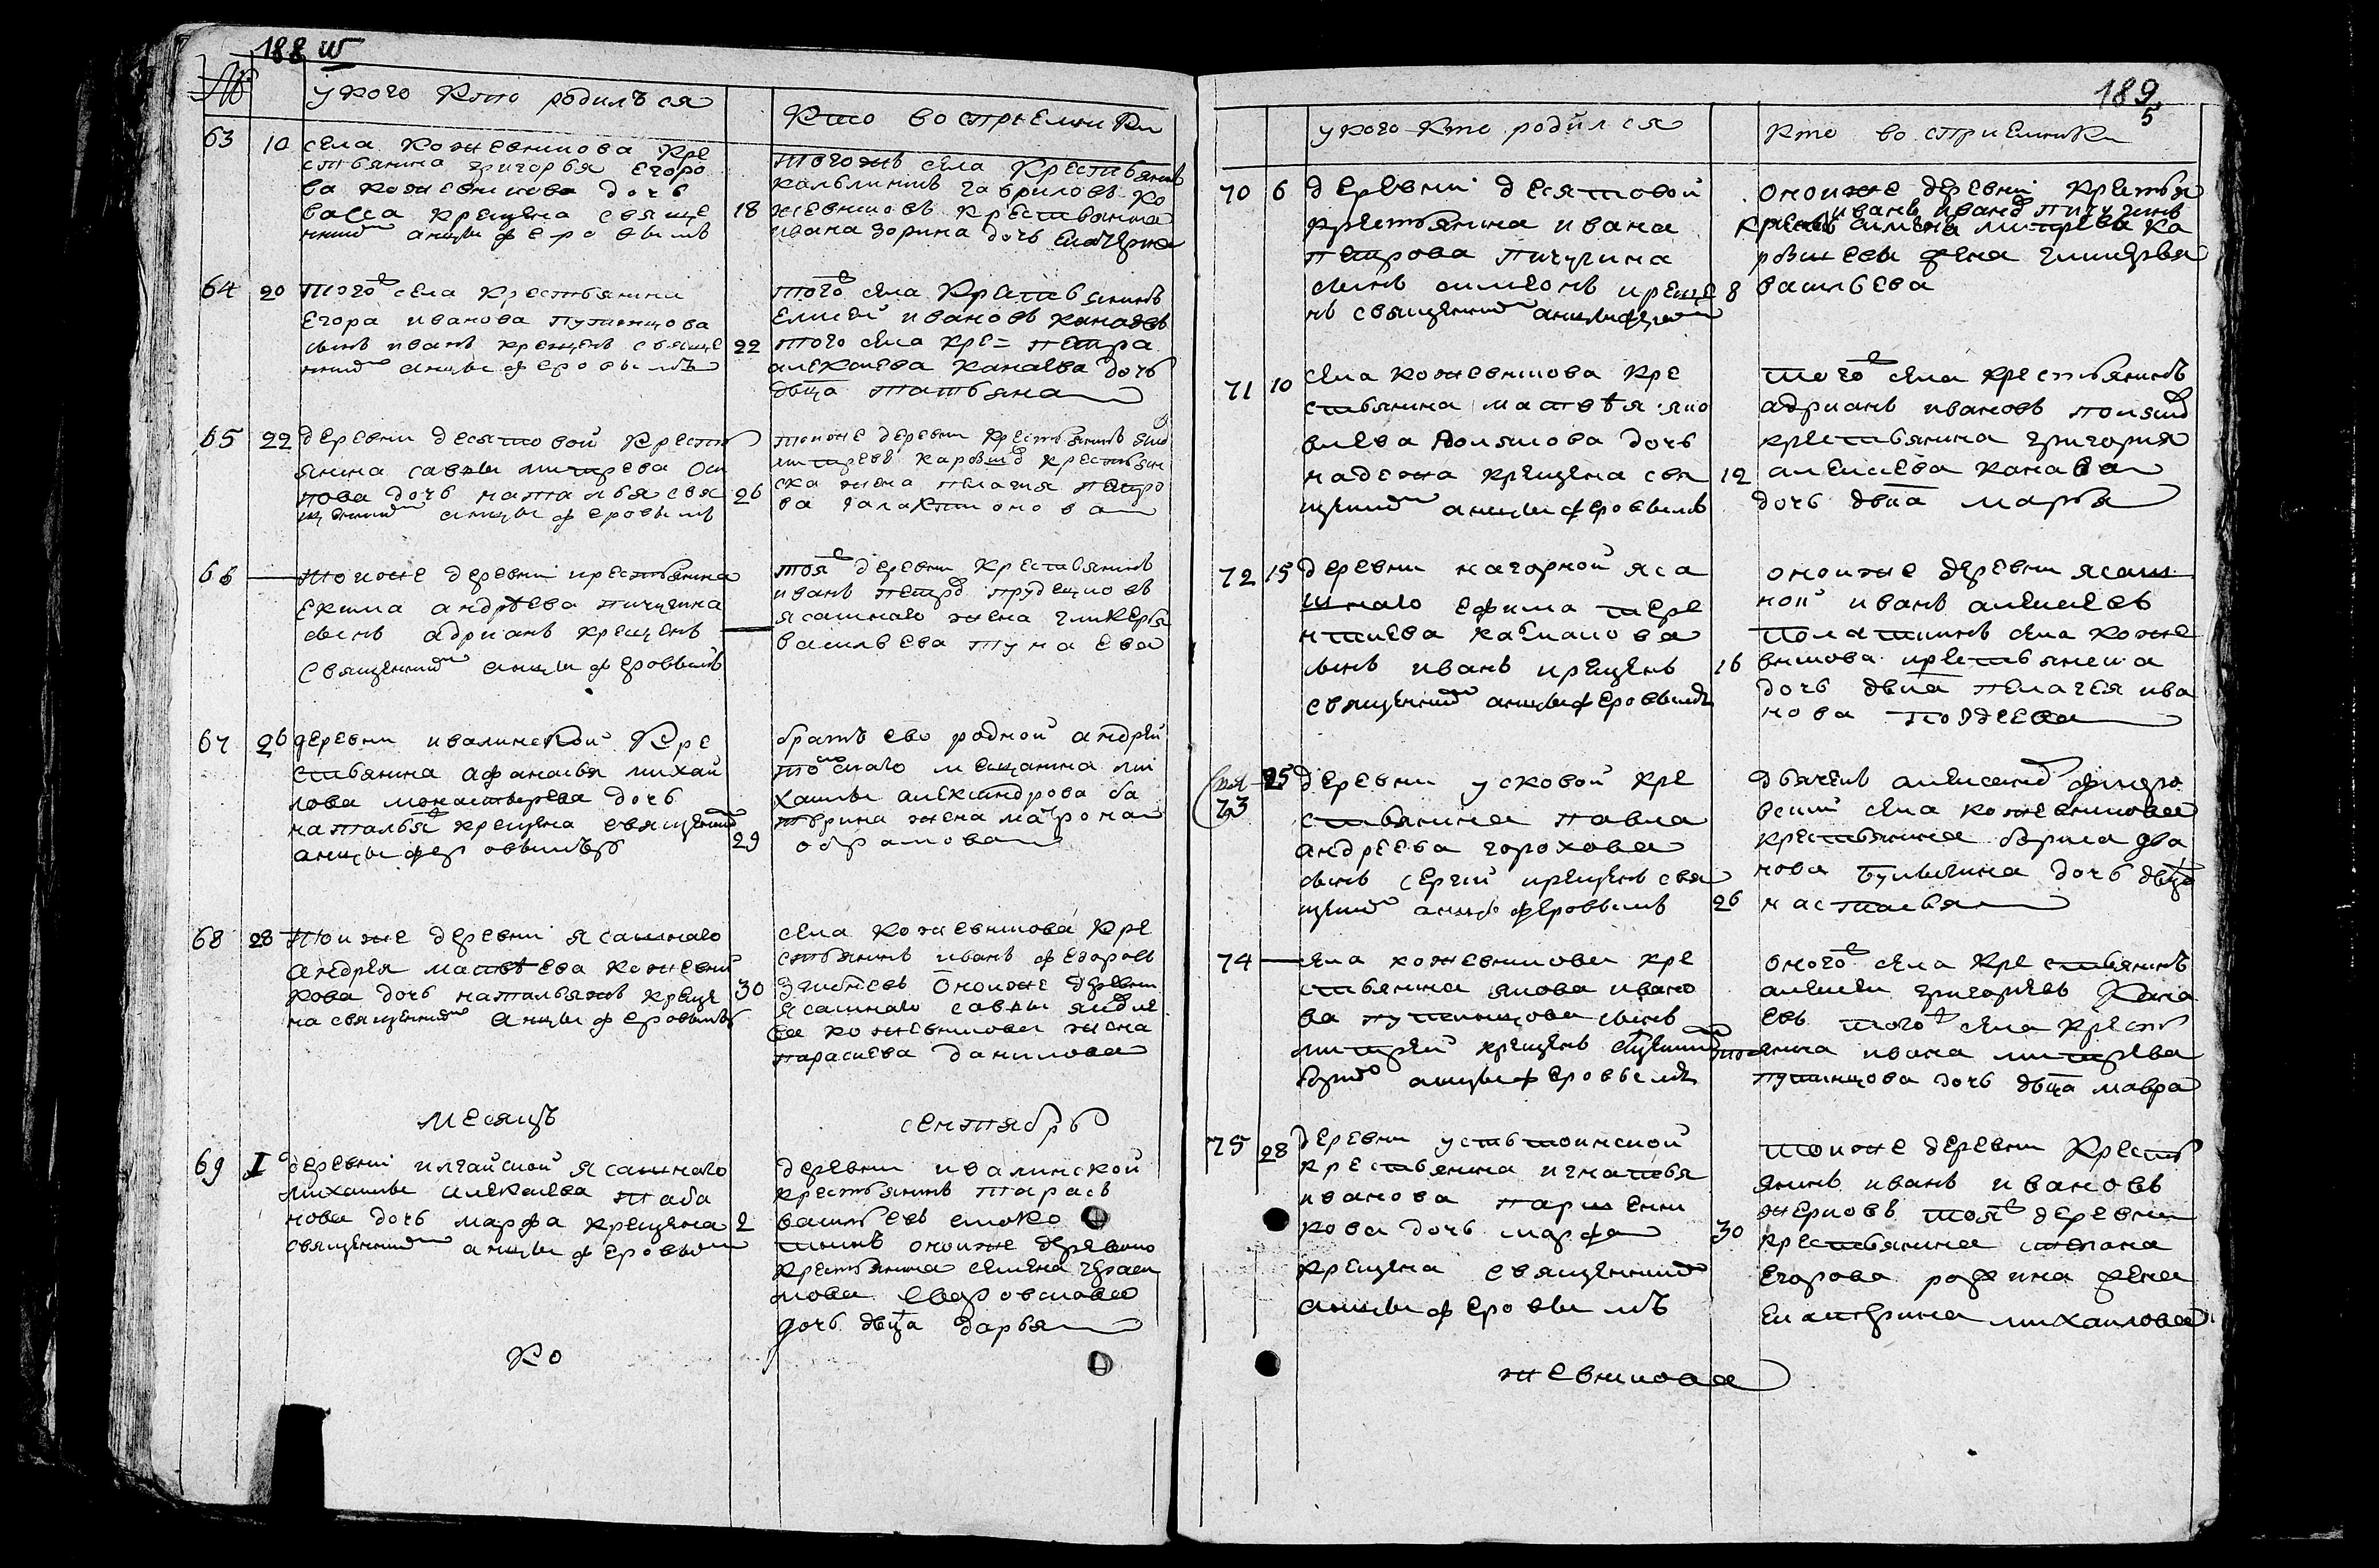 188 ш
№
у кого кто родилъся
Кто восприемники
63
10
села кожевникова кре
стьянина григорья егоро
ва кожевникова дочь
васса крещена свяще
нникомъ анцыферовымъ
18
тогожъ села крестьянинъ
гавриловъ ко
жевниковъ крестьянина
ивана зорина дочь екатерина
64
20
тогоже села крестьянина
егора иванова путинцова
сынъ иванъ крещенъ свяще
нникомъ анцыферовымъ
22
тогоже села крестьянинъ
елисей ивановъ канаевъ
того села кре= петра
алексеева канаева дочь
двца татьяна
65
22
деревни десятовой кресть
янина саввы митрева оси
пова дочь наталья свя
щенникомъ анцыферовымъ
26
тоиже деревни крестьянинъ
митревъ крестьян
ска жена пелагия петро
ва галактионова
66
тоиже деревни крестьянина
екима андрѣева пичугина
сынъ адрианъ крещенъ
священникомъ анцыферовымъ
тояже деревни крестьянинъ
иванъ петровъ
ясашнаго жена гликерья
васильева тунаева
67
26
деревни ивалинской кре
стьянина афанасья михаи
лова монастырева дочь
наталья крещена священникомъ
анцыферовымъ
29
братъ ево родной андрей
томскаго мещанина ми
хаилы александрова ба
турина жена матрона
абрамова
68
28
тоиже деревни ясашнаго
андрея матвѣева кожевни
кова дочь наталья крещe
на священникомъ анцыферовымъ
30
села кожевникова кре
стьянинъ иванъ фегоровъ
оноиже деревни
ясашнаго саввы
ва кожевникова жена
парасиева данилова
месяцъ
сентябрь
69
1
деревни илгайской ясашнаго
михаилы алексеева таба
нова дочь марфа крещена
священникомъ анцыферовымъ
2
деревни ивалинской
крестьянинъ тарасъ
васильевъ смоко
тинъ оноиже деревни
крестьянина семена гераси
мова
дочь двца дарья
ко
189
5
у кого кто родился
кто восприемники
70
6
деревни десятовой
крестьянина ивана
петрова пичугина
сынъ симеонъ креще
нъ священникомъ анцыферовымъ
8
оноиже деревни крестья
иванъ ивановъ пичугинъ
симена митрева ка
жена гликерья
васильева
71
10
села кожевникова кре
стьянина матвѣя яко
влева полякова дочь
надежа крещена свя
щенникомъ анцыферовымъ
12
тогоже села крестьянинъ
адрианъ ивановъ поляковъ
крестьянина григория
алексеева канаева
дочь двца марья
72
15
деревни нагорной яса
шнаго ефима тере
нтиева
сынъ иванъ крещенъ
священникомъ анцыферовымъ
16
оноиже деревни ясаш
ной иванъ алексеевъ
села коже
вникова крестьянина
дочь двца пелагея ива
нова поздеева
73
25
деревни усковой кре
стьянина павла
андреева горохова
сынъ сергии крещенъ свя
щенникомъ анцыферовымъ
26
дьячекъ александръ
села кожевникова
крестьянина бориса
нова дочь двца
настасья
74
села кожевникова кре
стьянина якова ивано
ва путинцова сынъ
митрей крещенъ священникомъ
анцыферовымъ
оногоже села крестьянинъ
алексеи григорьевъ кана
евъ тогоже села кресть
янина ивана митрева
путинцова дочь двца мавра
75
28
деревни устьтоинской
крестьянина игнатья
иванова паршенни
кова дочь марфа
крещена священникомъ
анцыферовымъ
30
тоиже деревни кресть
янинъ иванъ ивановъ
жерновъ тояже деревни
крестьянина степана
егорова родкина жена
екатерина михаилова
жевникова